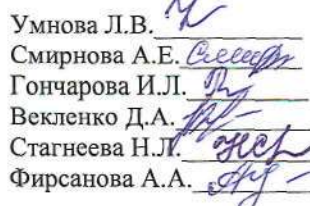 Умнова Л.В.
Смирнова А.Е.
Гончарова И.Л.
Векленко Д.А.
Стагнеева Н.Л.
Фирсанова А.А.